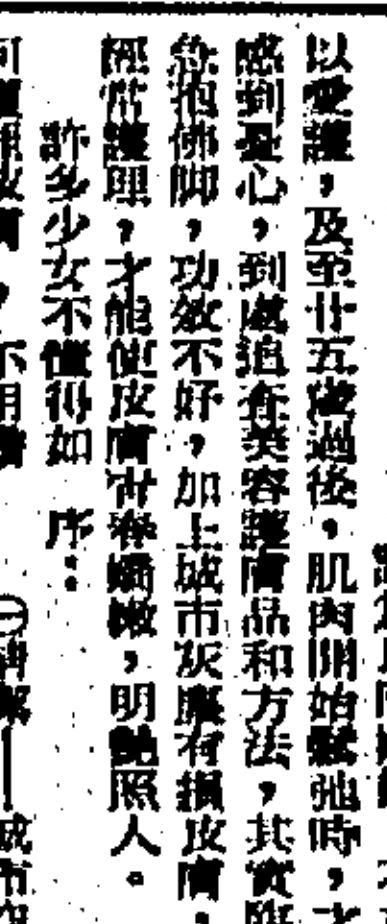 以愛護，及至廿五歲過後，肌肉開始鬆弛時，才
感到憂心，到處追查美容護膚品和方法，其實臨
急抱佛脚，功效不好，加上城市灰塵有損皮膚，
經常護理，才能使皮膚青春嬌嫩，明艷照人。
許多少女不懂得如　序：
㈠清潔—城市空